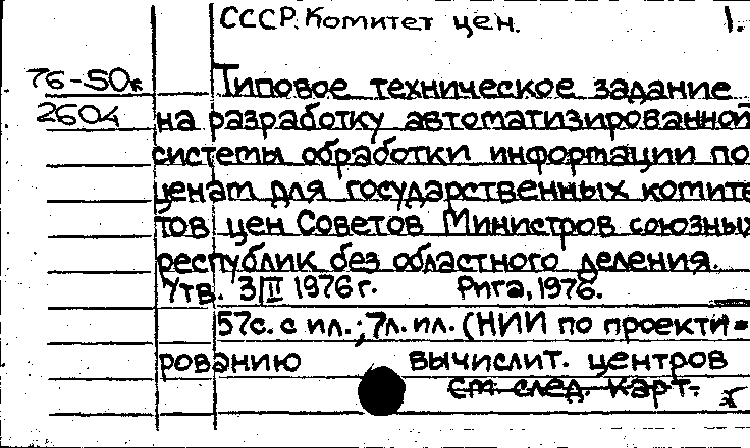 СССР. Комитет цен. 1.
76-50к Типовое техническое задание
2604 на разработку автоматизированной
системы обработки информации по
ценам для государственных комите
тов цен Советов Министров союзных
республик без областного деления.
Утв. 3/II 1976 г. Рига, 1976.
57с. с ил.; 7л. ил. (НИИ по проекти=
рованию вычислит. центров
см. след. карт.